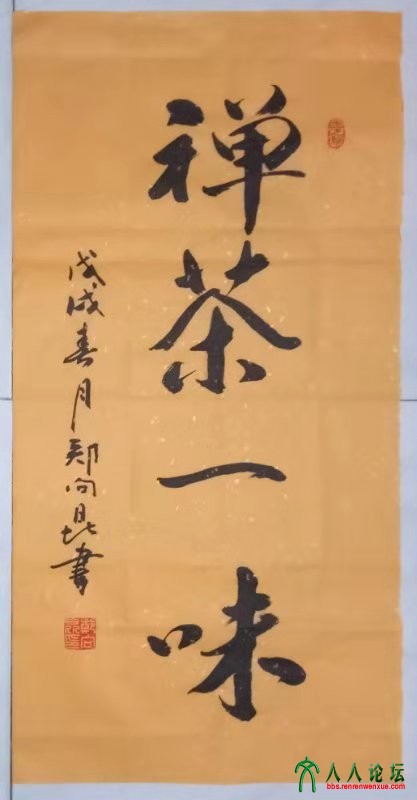 禅茶一味
戊戌春月郑向昆書
人人论坛
bbs.renrenwenxue.com